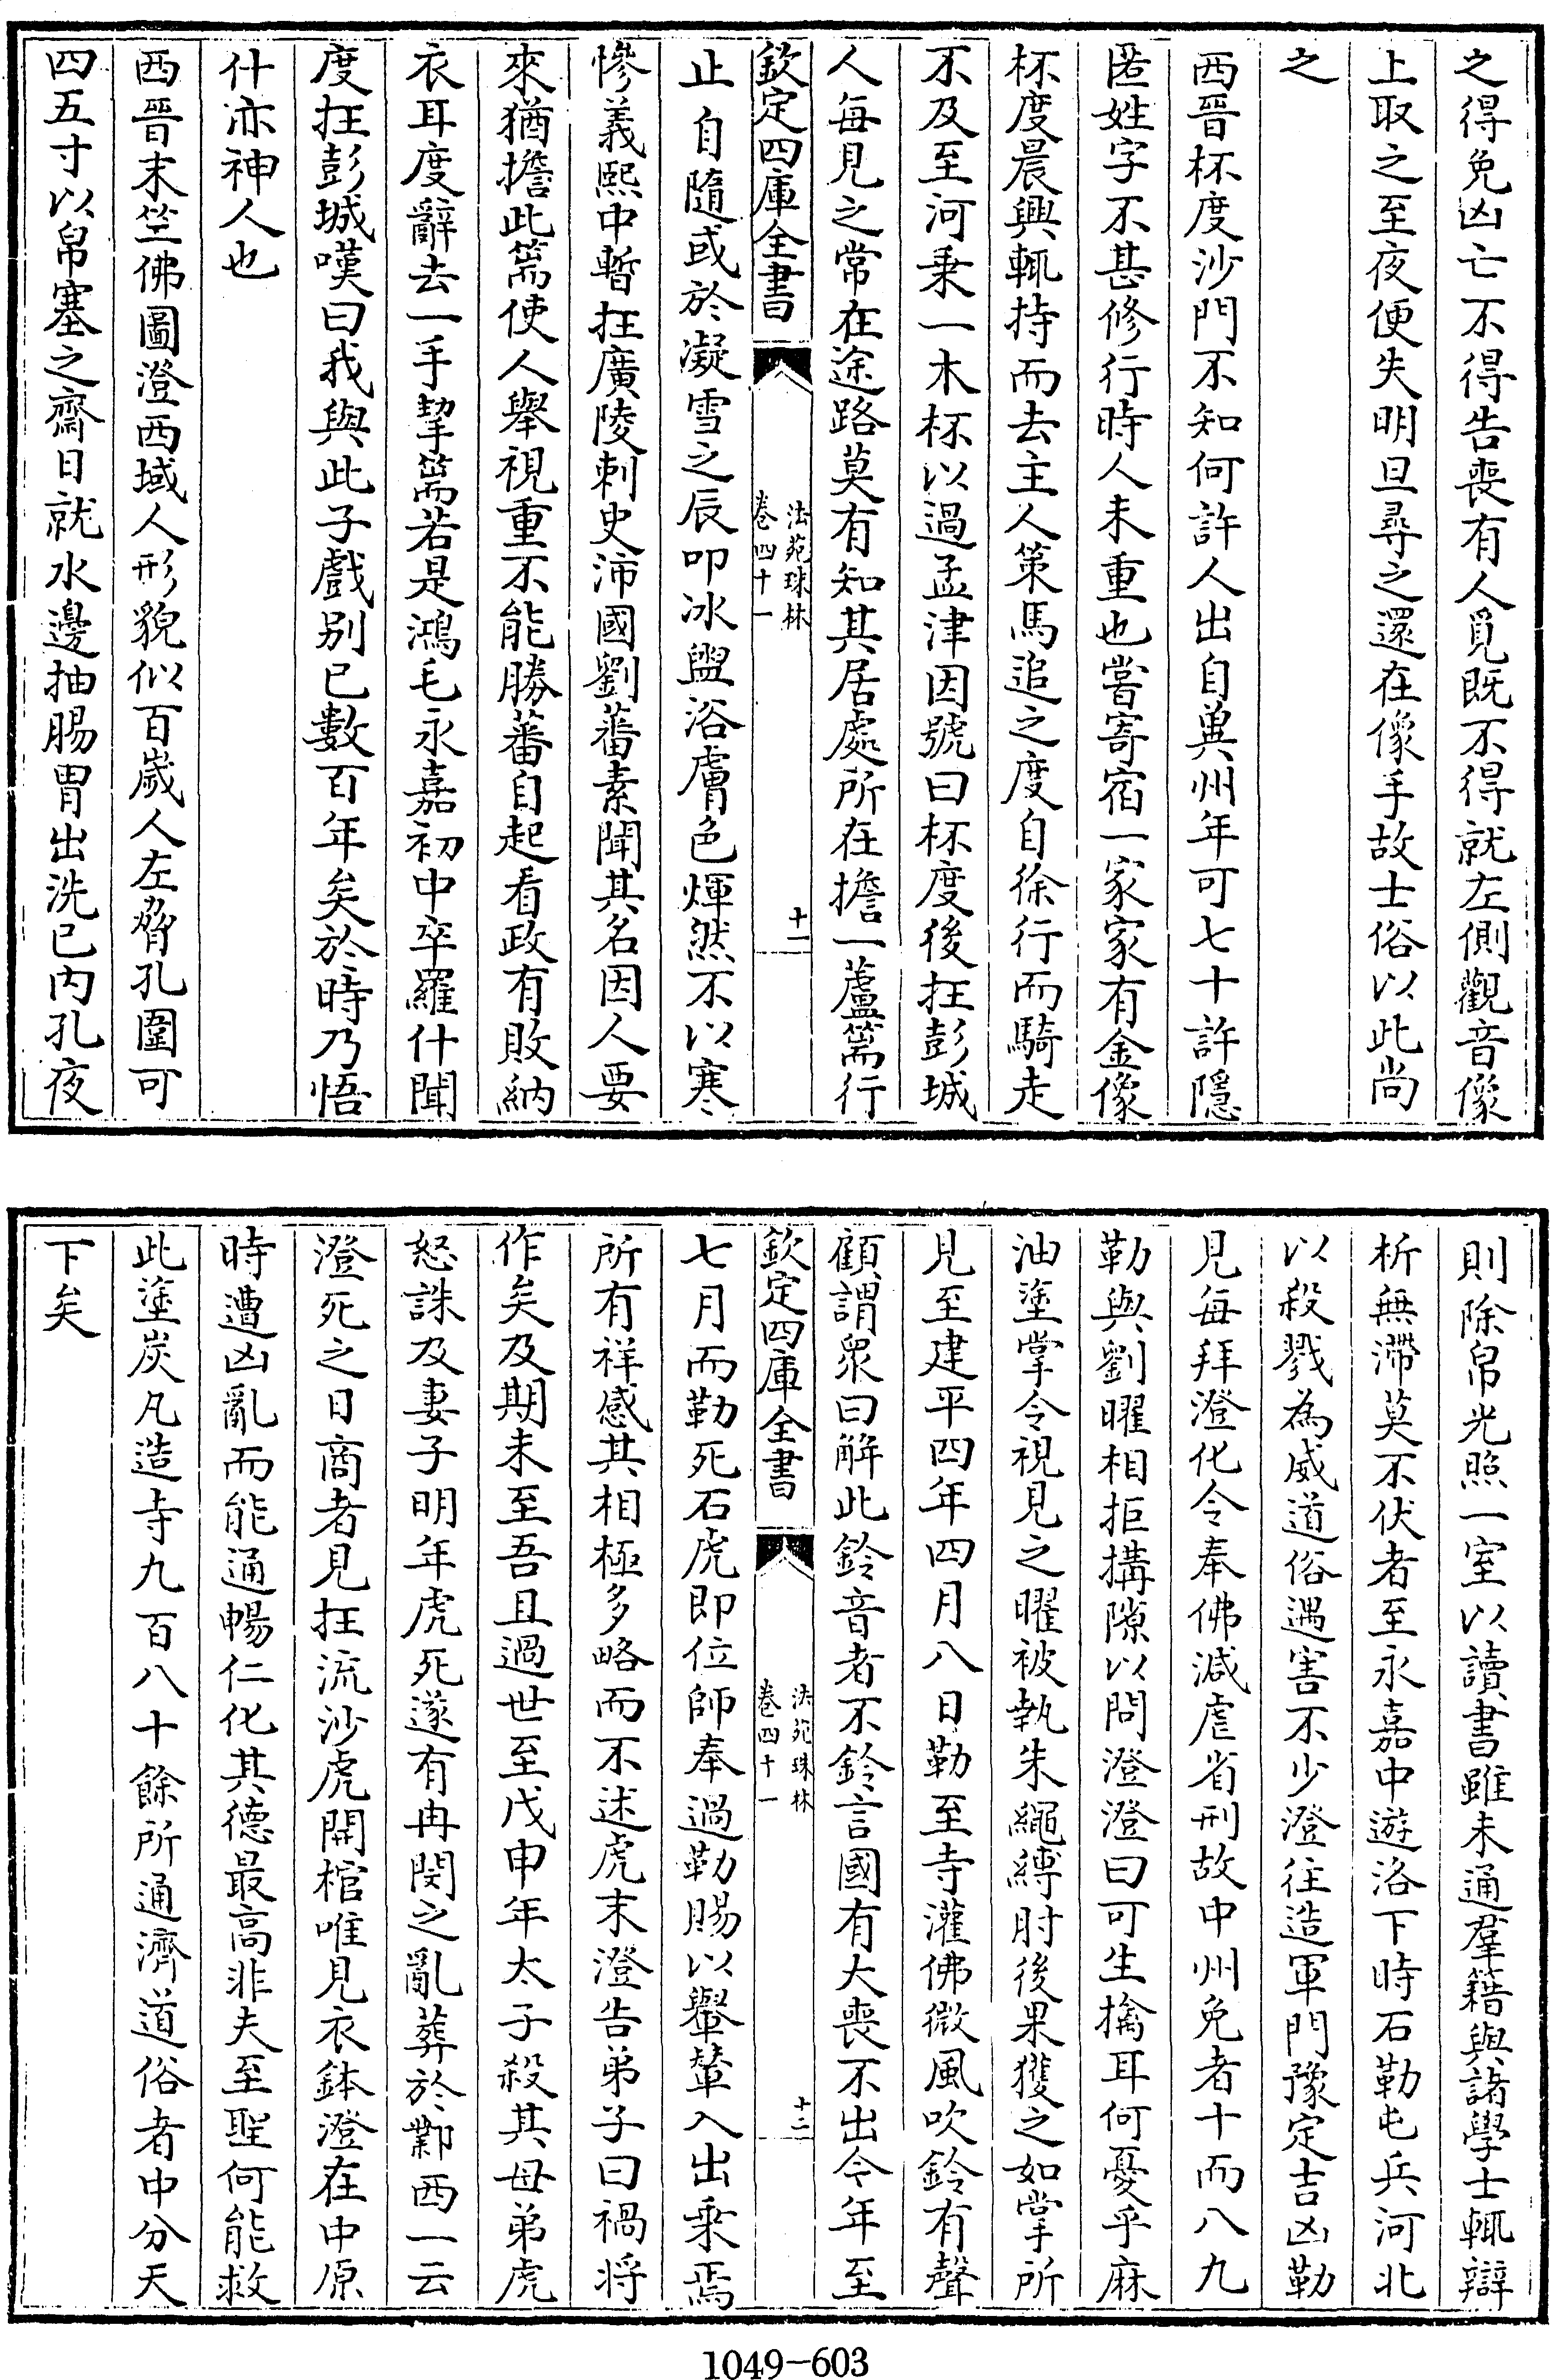 之得免凶亡不得告喪有人覓既不得就左側觀音像
上取之至夜便失明旦尋之還在像手故士俗以此尚
之
西晉杯度沙門不知何許人出自兾州年可七十許隱
匿姓字不甚修行時人未重也嘗寄宿一家家有金像
杯度晨興輒持而去主人策馬追之度自徐行而騎走
不及至河乗一木杯以過孟津因號曰杯度後在彭城
人每見之常在途路莫有知其居處所在擔一蘆篅行
欽定四庫全書
法苑珠林
卷四十一
十一
止自隨或於凝雪之辰叩冰盥浴膚色煇然不以寒
慘義熙中暫在廣陵刺史沛國劉蕃素聞其名因人要
來猶擔此篅使人舉視重不能勝蕃自起看政有敗納
衣耳度辭去一手挈篅若是鴻毛永嘉初中卒羅什聞
度在彭城嘆曰我與此子戲别已數百年矣於時乃悟
什亦神人也
西晉末竺佛圖澄西域人形貌似百歲人左脅孔圍可
四五寸以帛塞之齋日就水邊抽腸胃出洗已内孔夜
則除帛光照一室以讀書雖未通羣籍與諸學士輒辯
析無滯莫不伏者至永嘉中遊洛下時石勒屯兵河北
以殺戮為威道俗遇害不少澄往造軍門豫定吉凶勒
見每拜澄化令奉佛減虐省刑故中州免者十而八九
勒與劉曜相拒搆隙以問澄澄曰可生擒耳何憂乎麻
油塗掌令視見之曜被執朱繩縛肘後果獲之如掌所
見至建平四年四月八日勒至寺灌佛微風吹鈴有聲
顧謂衆曰解此鈴音者不鈴言國有大喪不出今年至
欽定四庫全書
法苑珠林
卷四十一
十二
七月而勒死石虎即位師奉過勒賜以轝輦入出乗焉
所有祥感其相極多略而不述虎末澄告弟子曰禍将
作矣及期未至吾且過世至戊申年太子殺其母弟虎
怒誅及妻子明年虎死遂有冉閔之亂葬於鄴西一云
澄死之日商者見在流沙虎開棺唯見衣鉢澄在中原
時遭凶亂而能通暢仁化其德最高非夫至聖何能救
此塗炭凡造寺九百八十餘所通濟道俗者中分天
下矣
1049-603